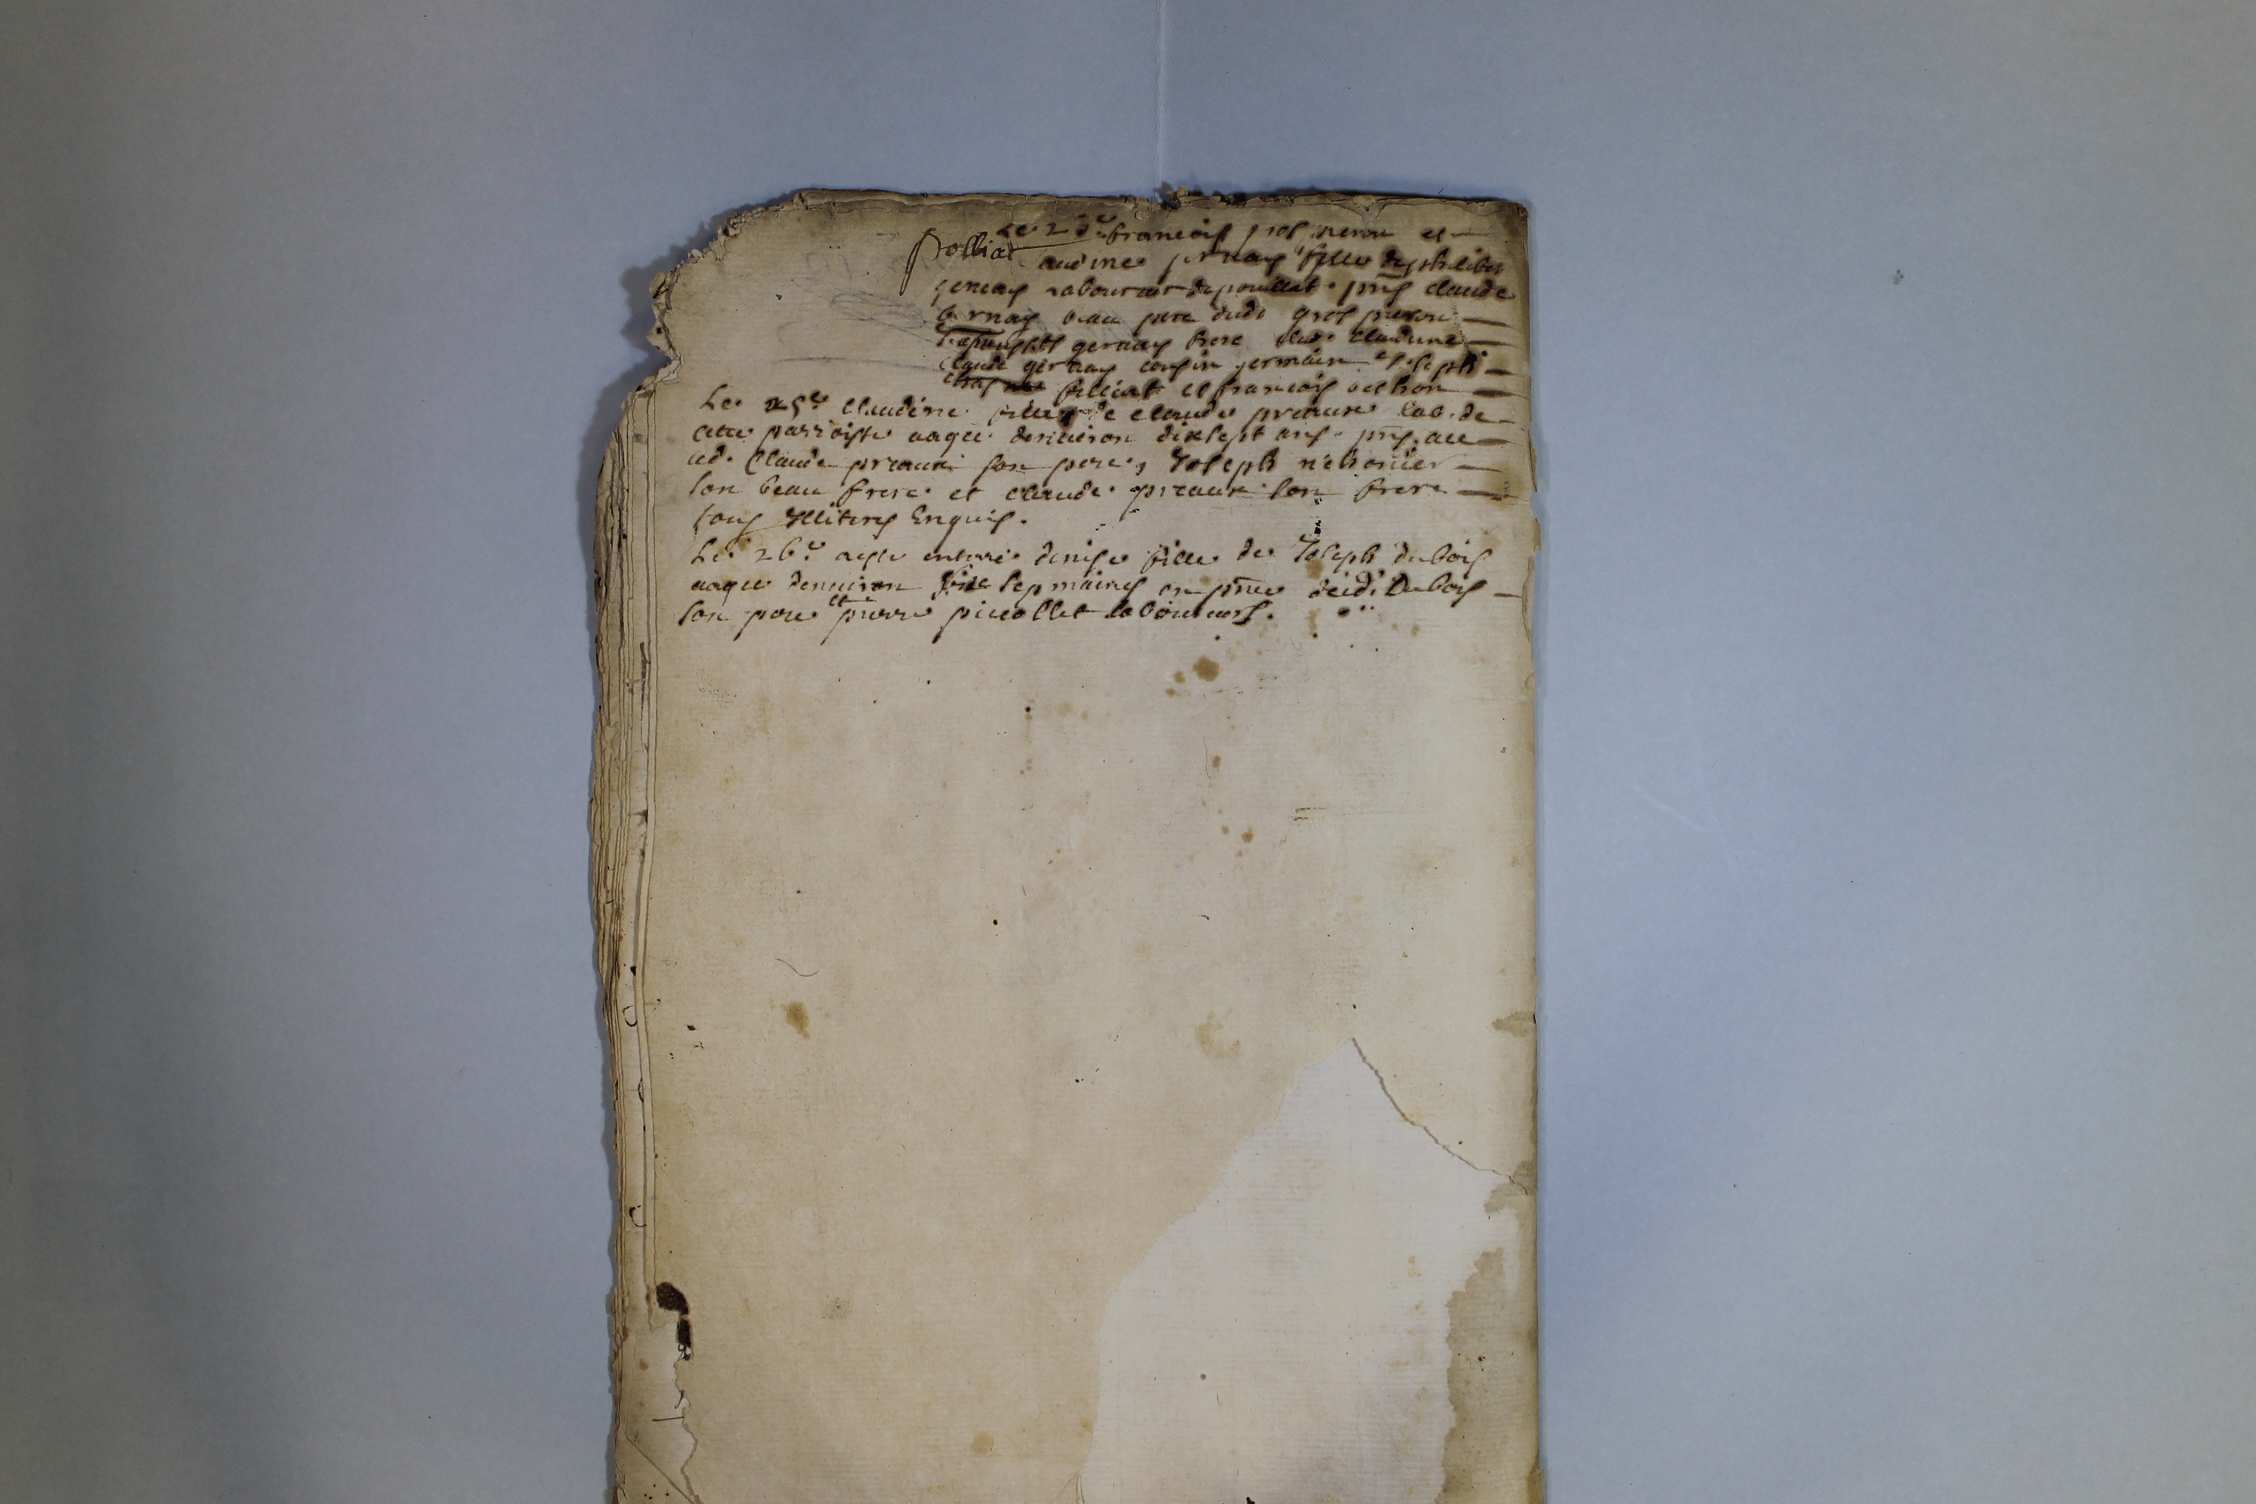 Le 23e francois gros pieron et
Polliat
audine gervays fille de philibert
gervays labourair de pouillat. pns claude
b rnay beau pere dudt gros pieron
gervays frere de lad. claudine
Claude gervays cousin germain et Joseph
filliat et francois vechon
Le 25e claudine fille de claude preaux lab. de
cette parroisse aagee denuiron dixsept ans. pns. au
ud. Claude preaux son pere, Joseph
son beau frere. et claude preaux son frere
tous Illiteres Enquis.
Le 26e a este enterré denise fille de Joseph dubois
aagee denuiron sepmaines en pnce dudt Dubois
son pere et pierre picollet laboureurs.